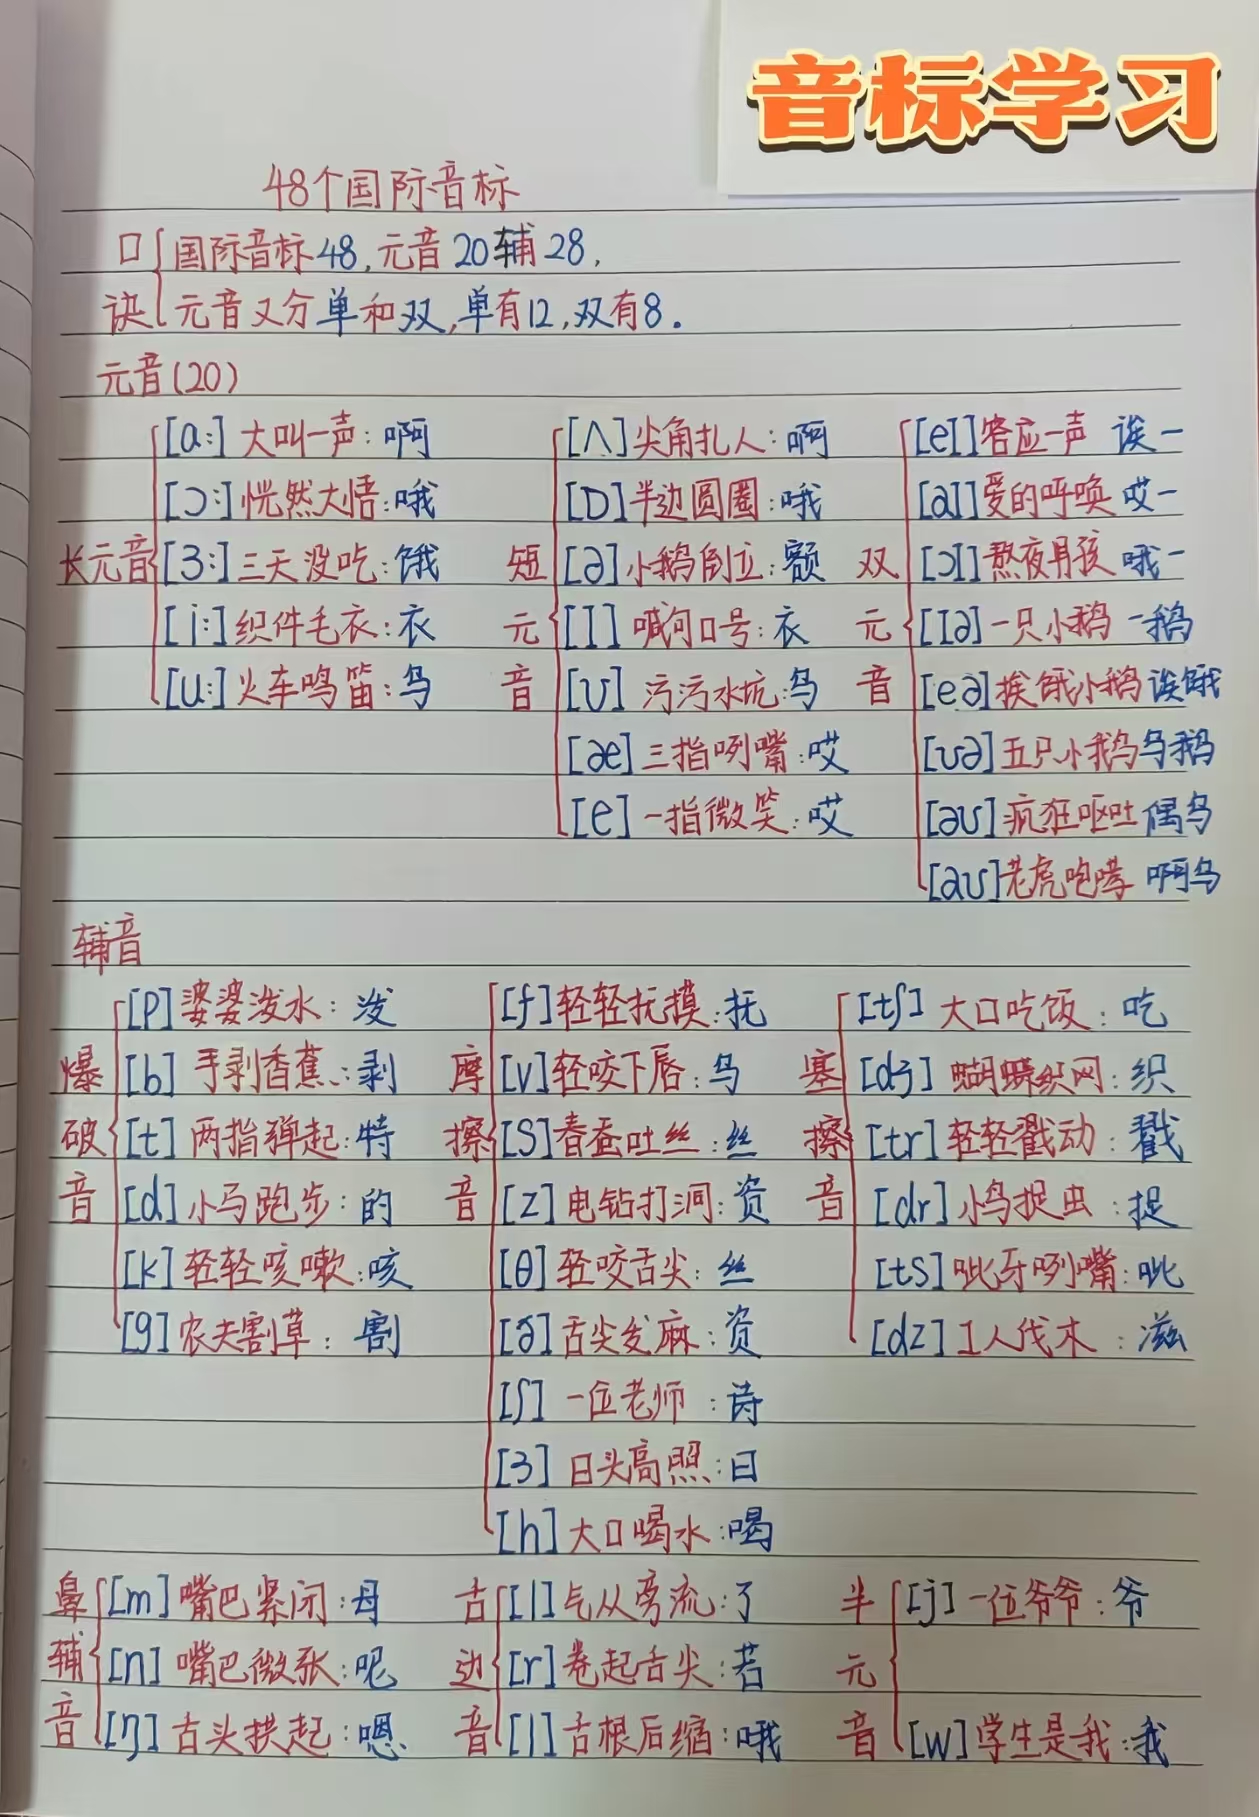 音标学习
48个国际音标
口诀 国际音标48,元音20辅28,
元音又分单和双,单有12,双有8.
元音(20)
[a:] 大叫一声:啊 [Λ] 尖角扎人:啊 [eI] 答应一声 诶一
[ɔ:] 恍然大悟:哦 [D] 半边圆圈:哦 [aI] 爱的呼唤 哎一
长元音 [3:] 三天没吃:饿 短 [ə] 小鹅倒立:额 双 [ɔI] 熬夜男孩 哦一
[i:] 织件毛衣:衣 元 [I] 喊问口号:衣 元 [Iə] 一只小鹅 一鹅
[u:] 火车鸣笛:乌 音 [ʊ] 污污水坑:乌 音 [eə] 挨饿小鹅 诶饿
[æ] 三指咧嘴:哎 [ʊə] 五只小鹅 乌鹅
[e] 一指微笑:哎 [əʊ] 疯狂呕吐 偶乌
[aʊ] 老虎咆哮 啊乌
辅音
[p] 婆婆泼水:泼 [f] 轻轻抚摸:抚 [tʃ] 大口吃饭:吃
爆 [b] 手剥香蕉:剥 摩 [v] 轻咬下唇:乌 塞 [dʒ] 蝴蝶织网:织
破 [t] 两指弹起:特 擦 [S] 春蚕吐丝:丝 擦 [tr] 轻轻戳动:戳
音 [d] 小马跑步:的 音 [z] 电钻打洞:资 音 [dr] 小鸟捉虫:捉
[k] 轻轻咳嗽:咳 [θ] 轻咬舌尖:丝 [ts] 呲牙咧嘴:呲
[g] 农夫割草:割 [ð] 舌尖发麻:资 [dz] 工人伐木:滋
[ʃ] 一位老师:诗
[3] 日头高照:日
[h] 大口喝水:喝
鼻 [m] 嘴巴紧闭:母 舌 [l] 气从旁流:了 半 [j] 一位爷爷:爷
辅 [n] 嘴巴微张:呢 边 [r] 卷起舌尖:若 元
音 [ŋ] 舌头拱起:嗯 音 [l] 舌根后缩:哦 音 [w] 学生是我:我